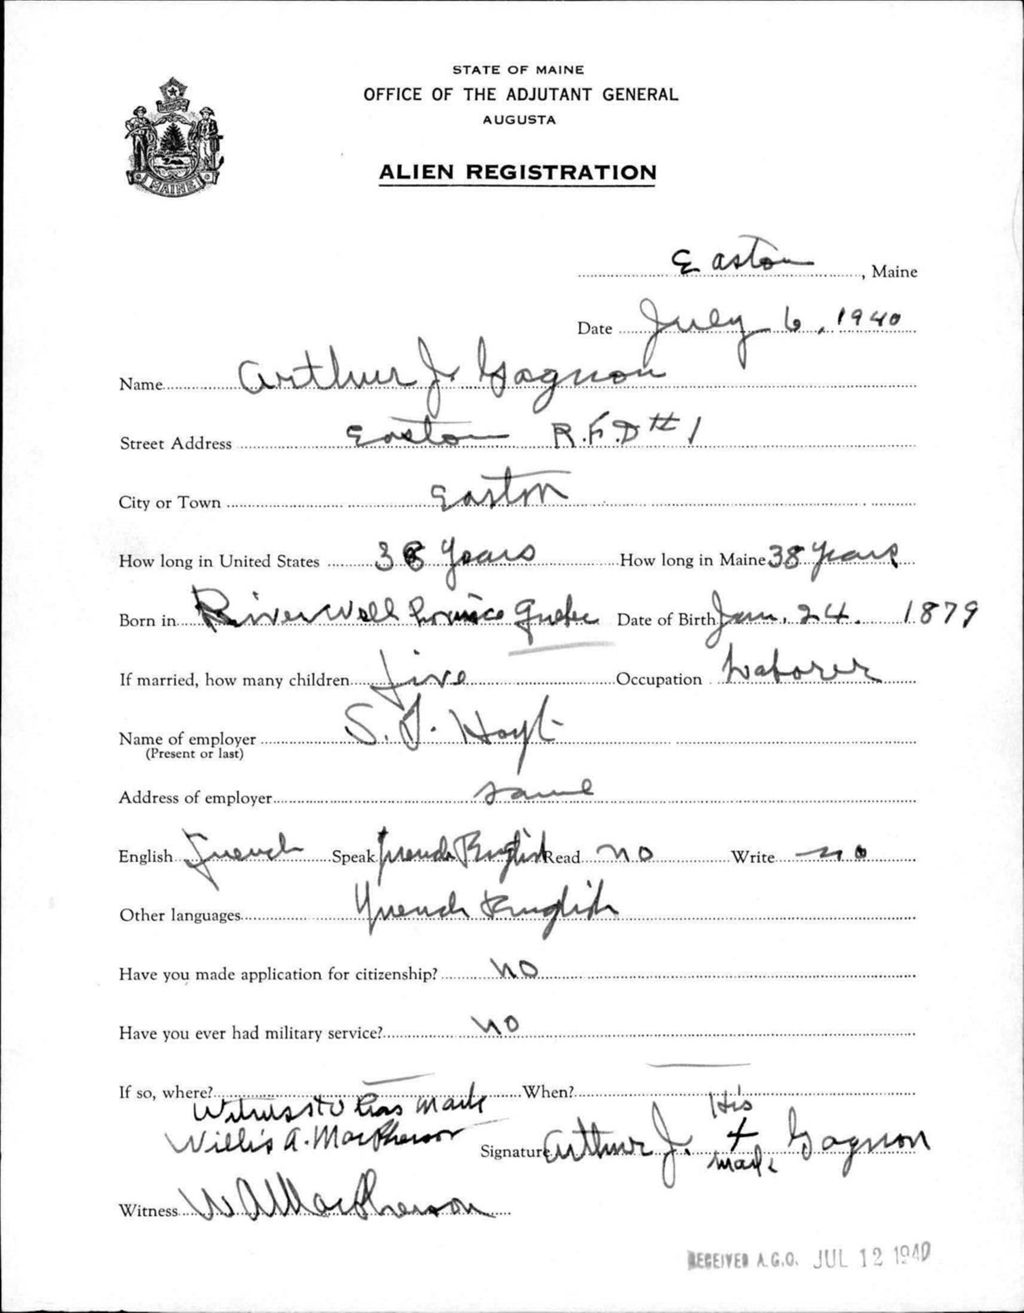 STATE OF MAINE
OFFICE OF THE ADJUTANT GENERAL
AUGUSTA
ALIEN REGISTRATION
MAINE
Easton, Maine
Date July 6, 1940
Name Arthur J. Gagnon
Street Address Easton R.F.D #1
City or Town Easton
How long in United States 38 Years How long in Maine 38 years
Born in River Well Province Quebec Date of Birth Jan. 24. 1879
If married, how many children five Occupation Laborer
Name of employer S. J. Hoyt
(Present or last)
Address of employer same
English French Speak French English Read no Write no
Other languages French English
Have you made application for citizenship? no
Have you ever had military service? no
If so, where? When?
Witness to his mark
Willis A. MacPherson
His
Signature Arthur J. + Gagnon
mark
Witness W A MacPherson
RECEIVED A.G.O. JUL 12 1940